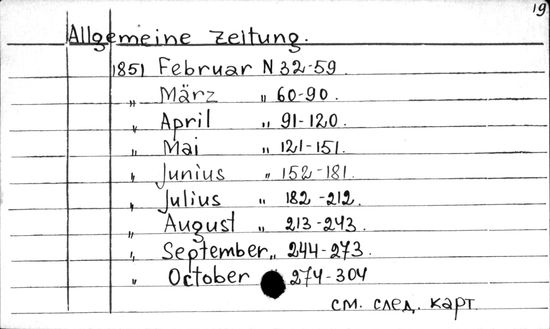 19
Allgemeine Zeitung.
1851 Februar N 32-59.
„ März „ 60-90.
„ April „ 91-120.
„ Mai „ 121-151.
„ Junius „ 152-181.
„ Julius „ 182-212.
„ August „ 213-243.
„ September „ 244-273.
„ October 274-304
см. след. карт.